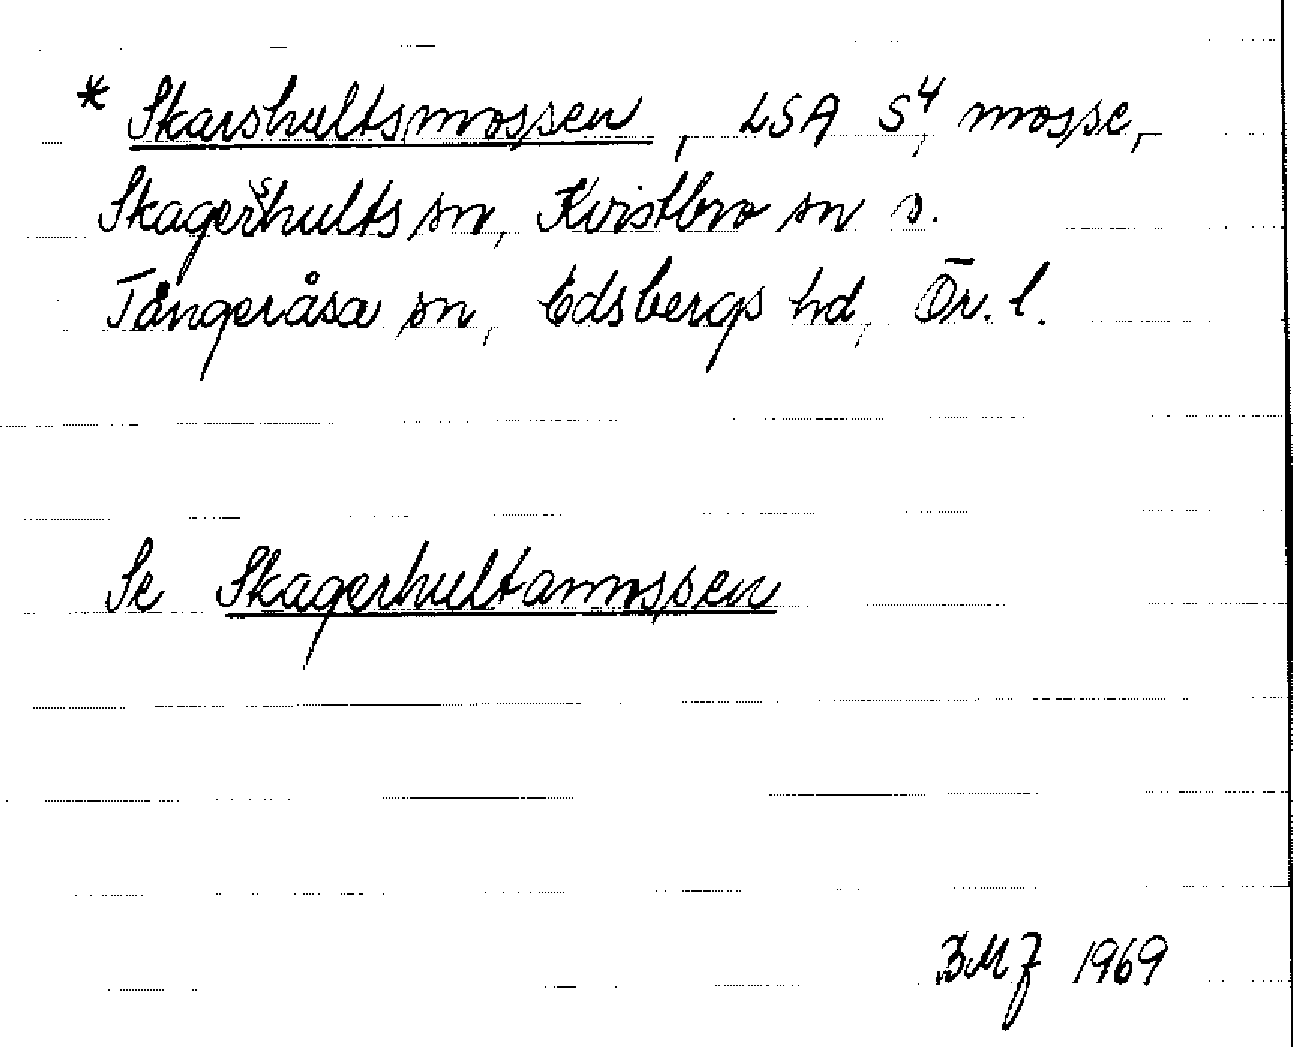 * Skarshultsmossen, LSA S4, mosse,
Skagershults sn, Kvistbro sn o.
Tångeråsa sn, Edsbergs hd, Ör. l.
Se Skagerhultamossen
BMJ 1969